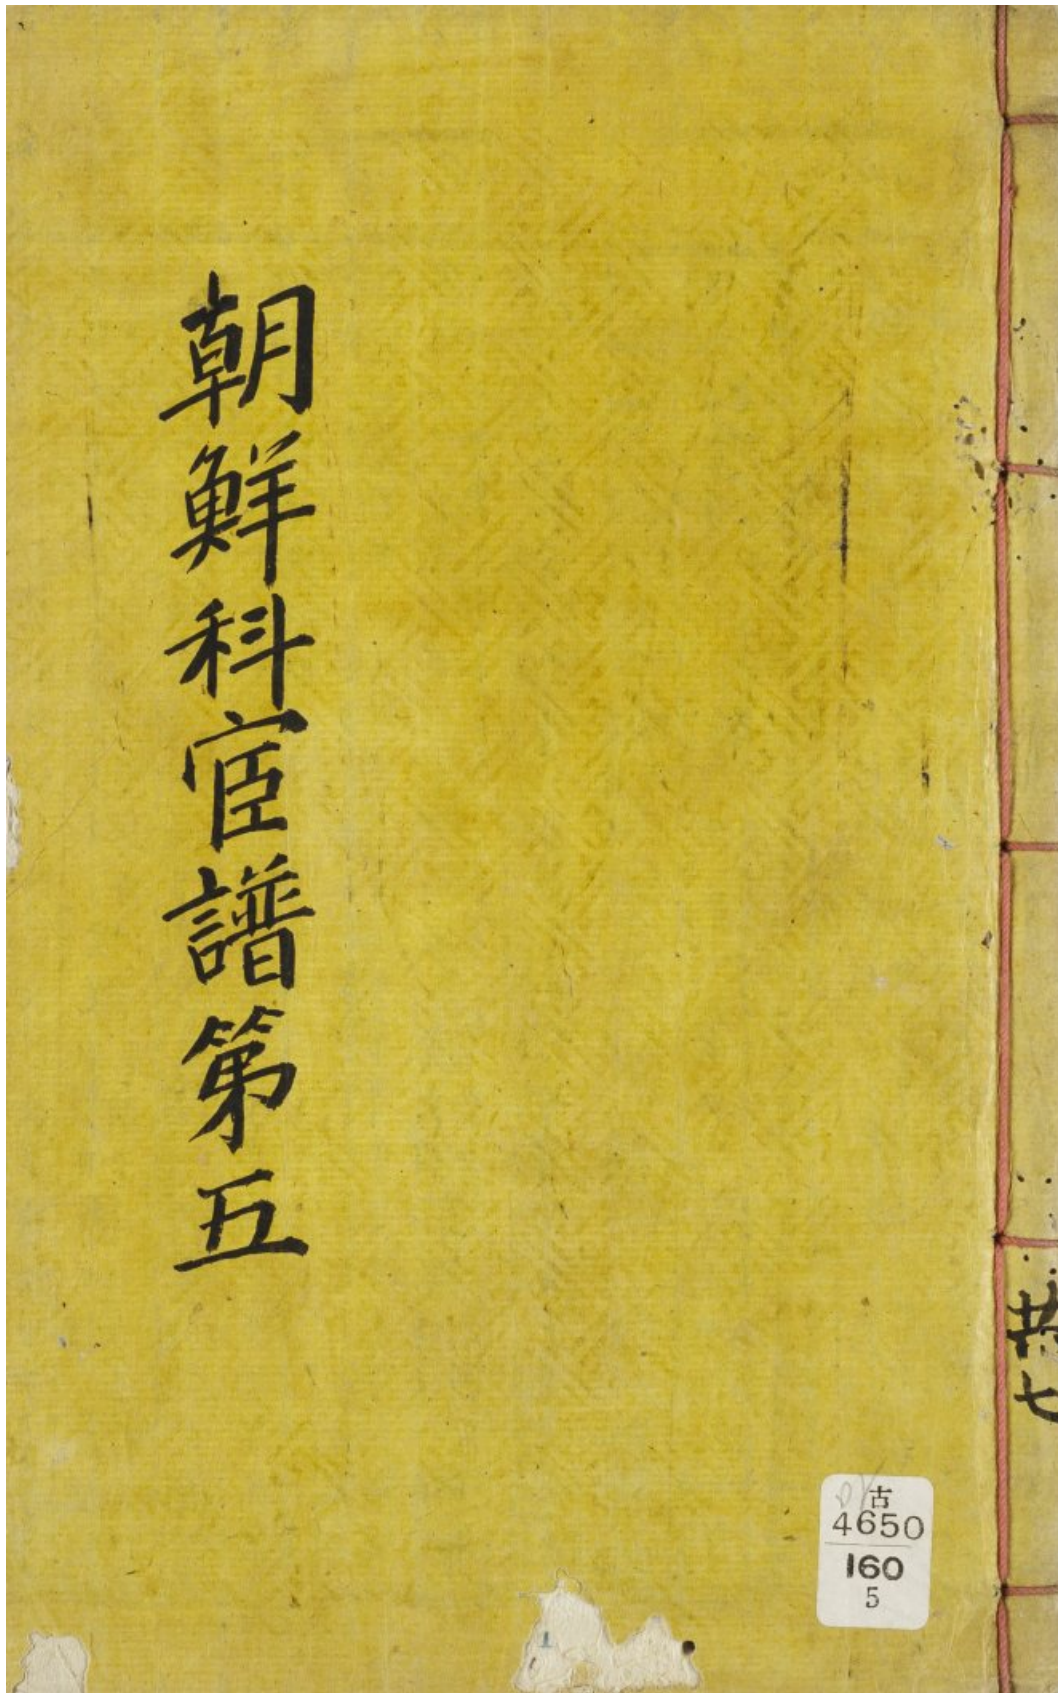 朝鮮科宦譜第五
共七
古
4650
160
5